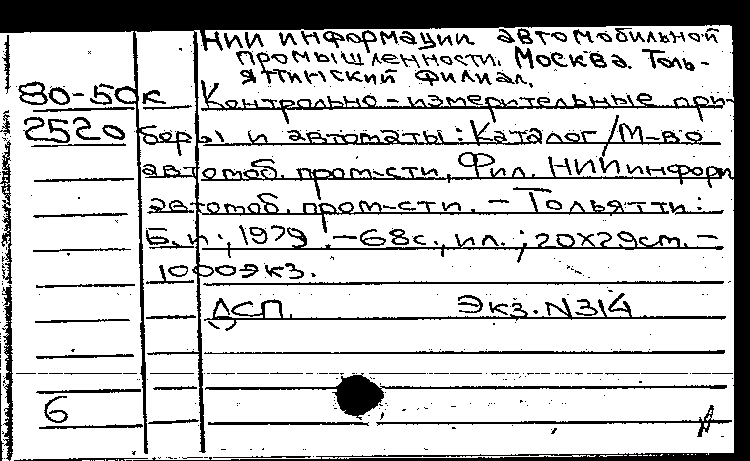 НИИ информации автомобильной
промышленности. Москва. Толь-
яттинский филиал.
80-50к Контрольно-измерительные при-
2520 боры и автоматы: Каталог/М-во
автомоб. пром-сти, Фил. НИИинформ
автомоб. пром-сти. - Тольятти:
Б.и.; 1979. - 68с., ил.; 20х29см. -
1000экз.
ДСП. Экз. N314
6